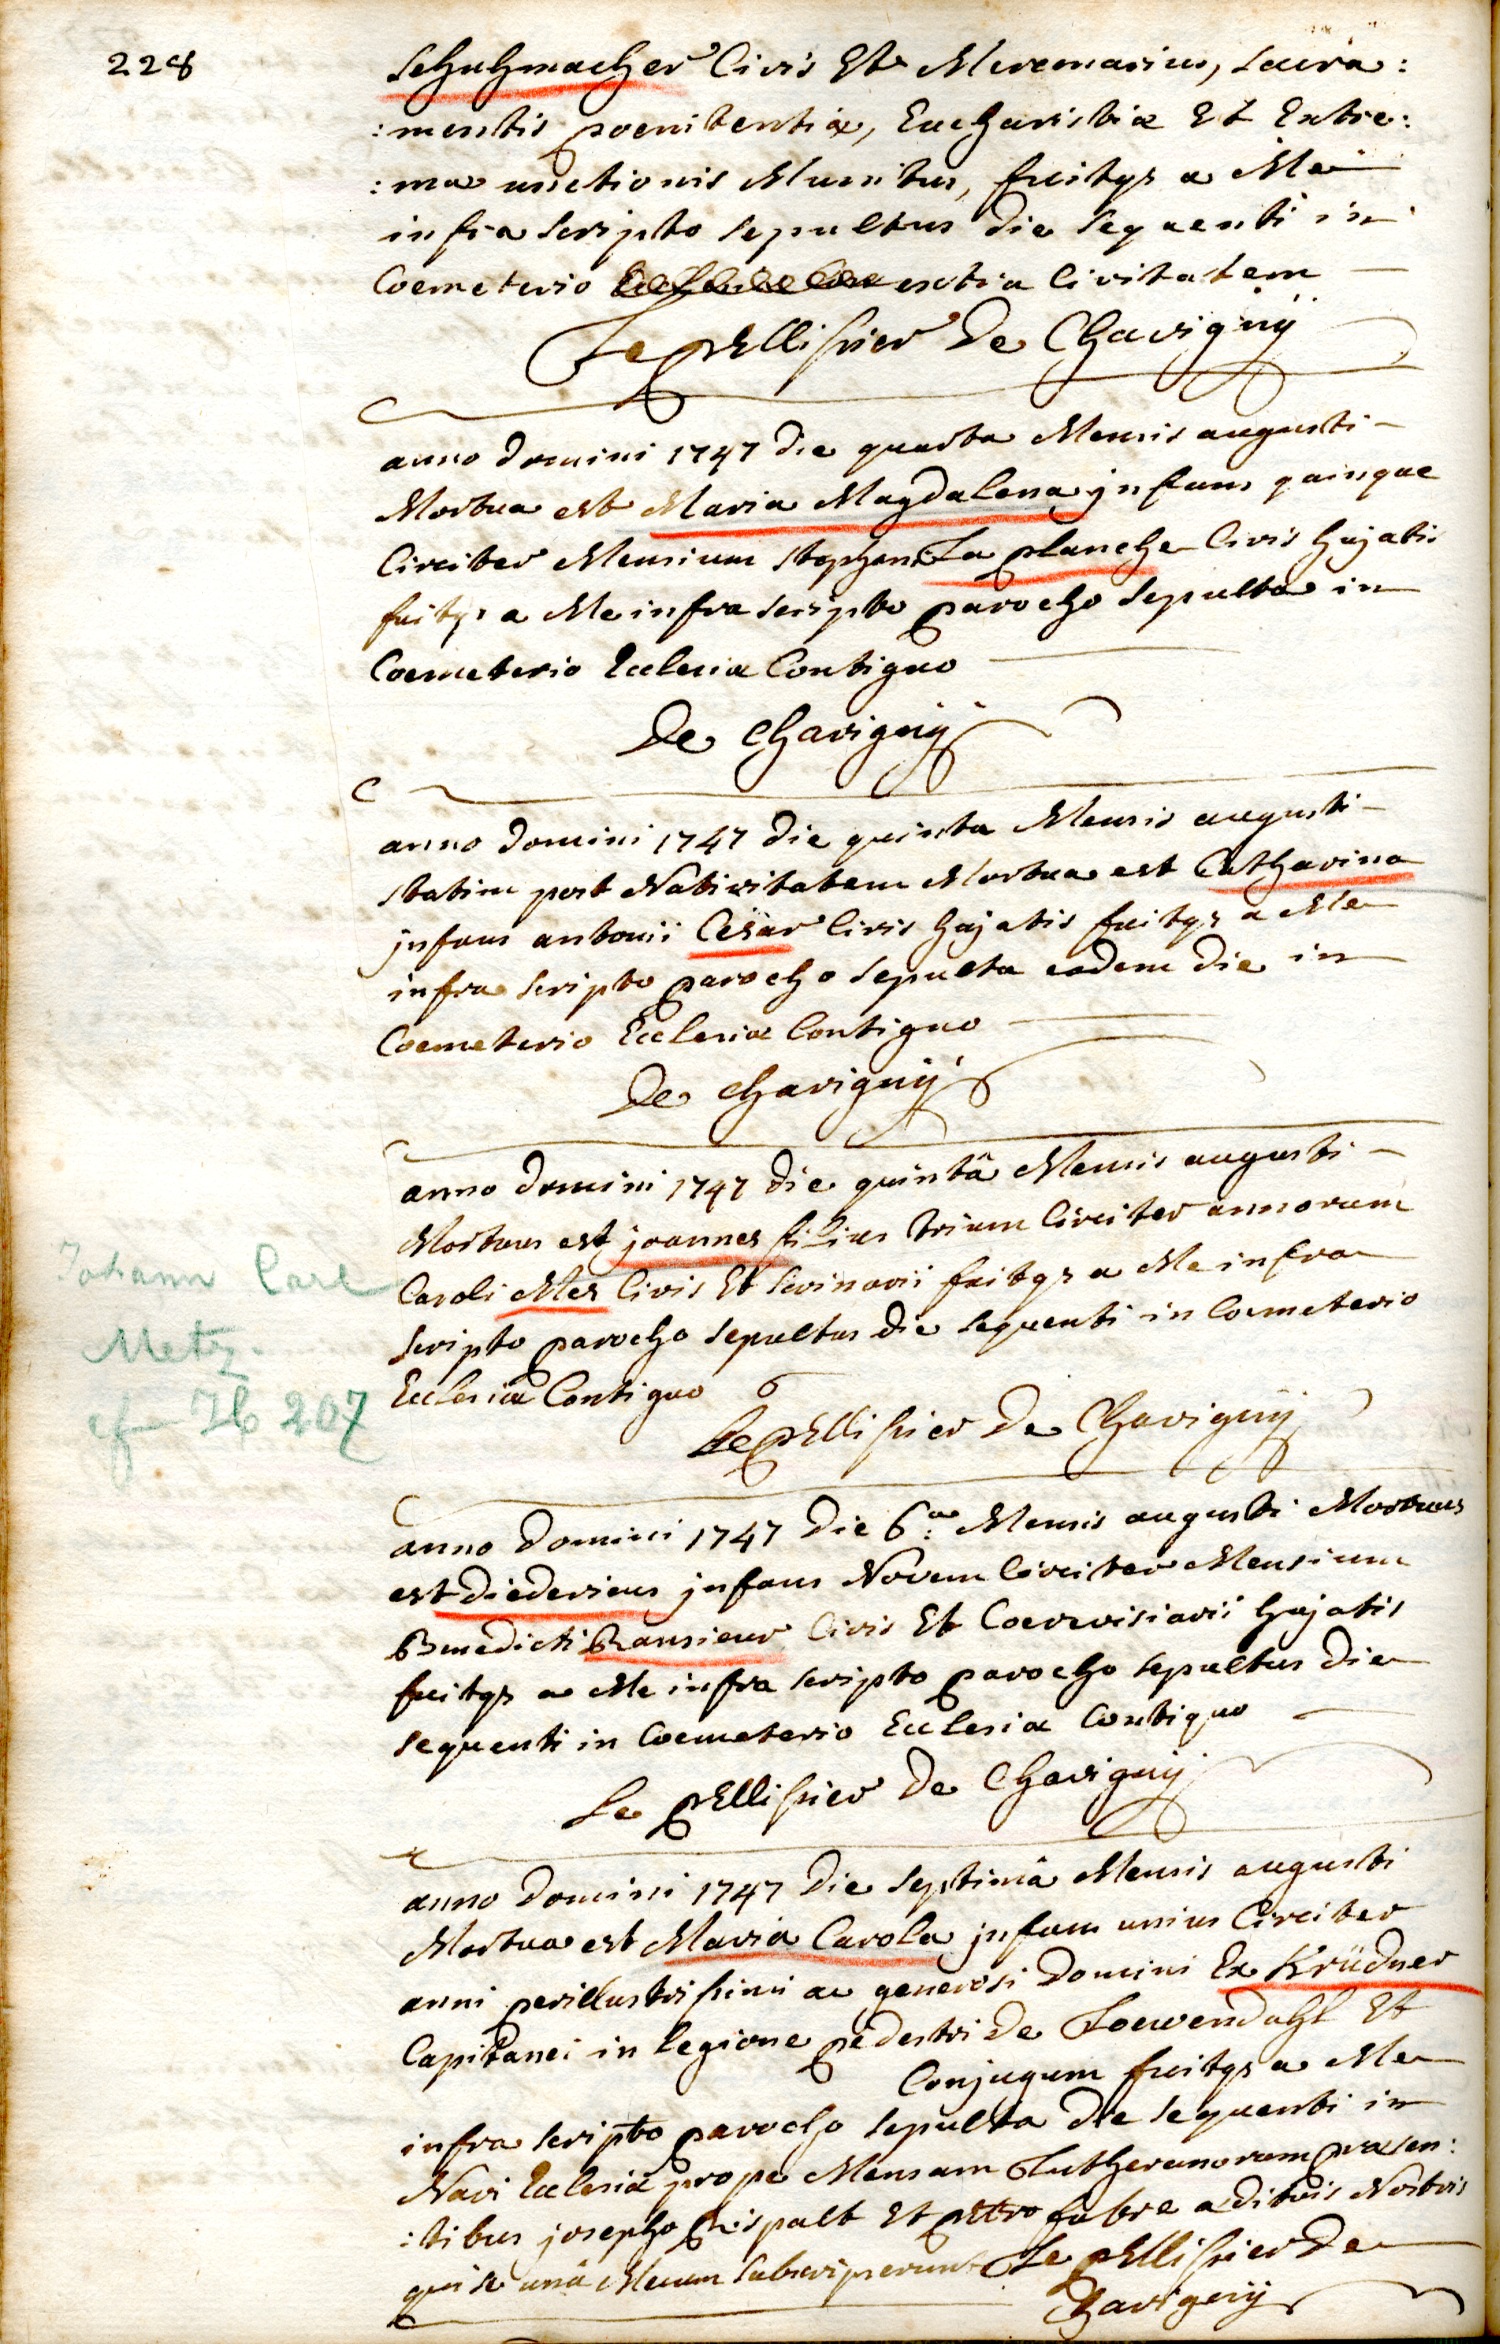 228
Schuhmacher Civis Et Mercenarius, sacra:
:mentis poenitentiæ, Eucharistiæ Et Extre:
:mæ unctionis Munitus, fuitqs a Me
infra scripto sepultus die sequenti in
Coemeterio extra Civitatem
Le pEllissier De Chavignÿ
anno domini 1747 die quarta Mensis augusti
Mortua est Maria Magdalena jnfans quinque
Circiter Mensium stephani La planche Civis hujatis
fuitqs a Me infra scripto parocho sepulta in
Coemeterio Ecclesiæ Contiguo
De Chavignÿ
anno domini 1747 die quinta Mensis augusti
statim post Nativitatem Mortua est Catharina
jnfans antonii Cesar Civis hujatis fuitqs a Me
infra scripto parocho sepulta eadem die in
Coemeterio Ecclesiæ Contiguo
De chavignÿ
anno domini 1747 die quintâ Mensis augusti
Mortuus est joannes filius trium Circiter annorum
Caroli Mes Civis Et Scrinarii fuitqs a Me infra
scripto parocho sepultus die sequenti in Coemeterio
Ecclesiæ Contiguo
Johann Carl
Metz.
cf Tb 207
Le pEllissier De Chavignÿ
anno domini 1747 die 6a: Mensis augusti Mortuus
est diedericus jnfans Novem Circiter Mensium
Benedicti Ransieur Civis Et Coerevisiarii hujatis
fuitqs a Me infra scripto parocho sepultus die
sequenti in Coemeterio Ecclesiæ Contiguo
Le pEllissier De Chavignÿ
anno domini 1747 die septimâ Mensis augusti
Mortua est Maria Carola jnfans unius Circiter
anni perillustrissimi ac generosi Domini Ex Krüdner
Capitanei in legione pedestri De Loewendahl Et
Conjugum fuitqs a Me
infra scripto parocho sepulta die sequenti in
Navi Ecclesiæ prope Mensam Lutheranorum præsen:
:tibus josepho Rispalt Et petro fabre aedituis Nostris
qui se unâ Mecum subscripserunt Le pEllissier De
Chavignÿ